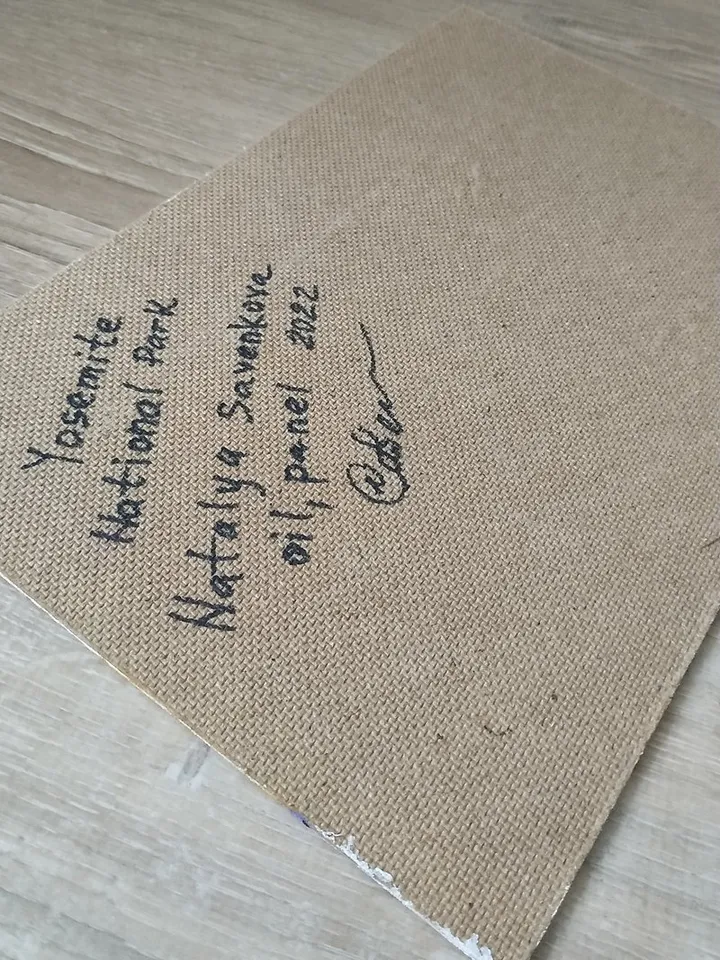 Yosemite
National Park
Natalya Savenkova
oil, panel 2022